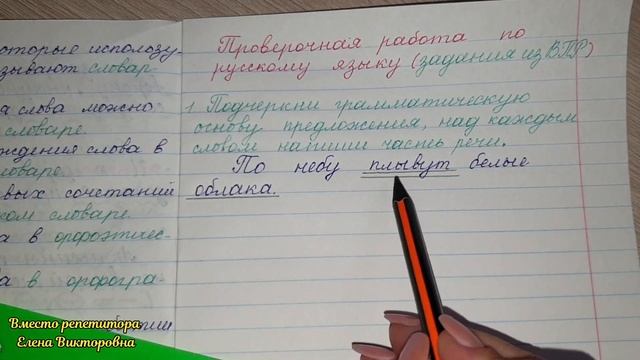 которые использу-
зывают словар-
а слова можно
словаре.
ждения слова в
ловаре.
вых сочетаний
ком словаре.
а в орфоэпичес-
а в орфогра-
Проверочная работа по
русскому языку (задания из ВПР)
1. Подчеркни грамматическую
основу предложения, над каждым
словом напиши часть речи.
По небу плывут белые
облака.
Вместо репетитора
Елена Викторовна